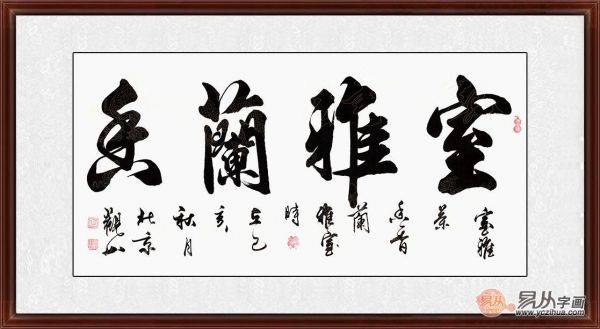 室雅蘭香
室雅
蘭
雅室
時
己
亥
秋月
北京
觀山
易从字画
www.yczihua.com